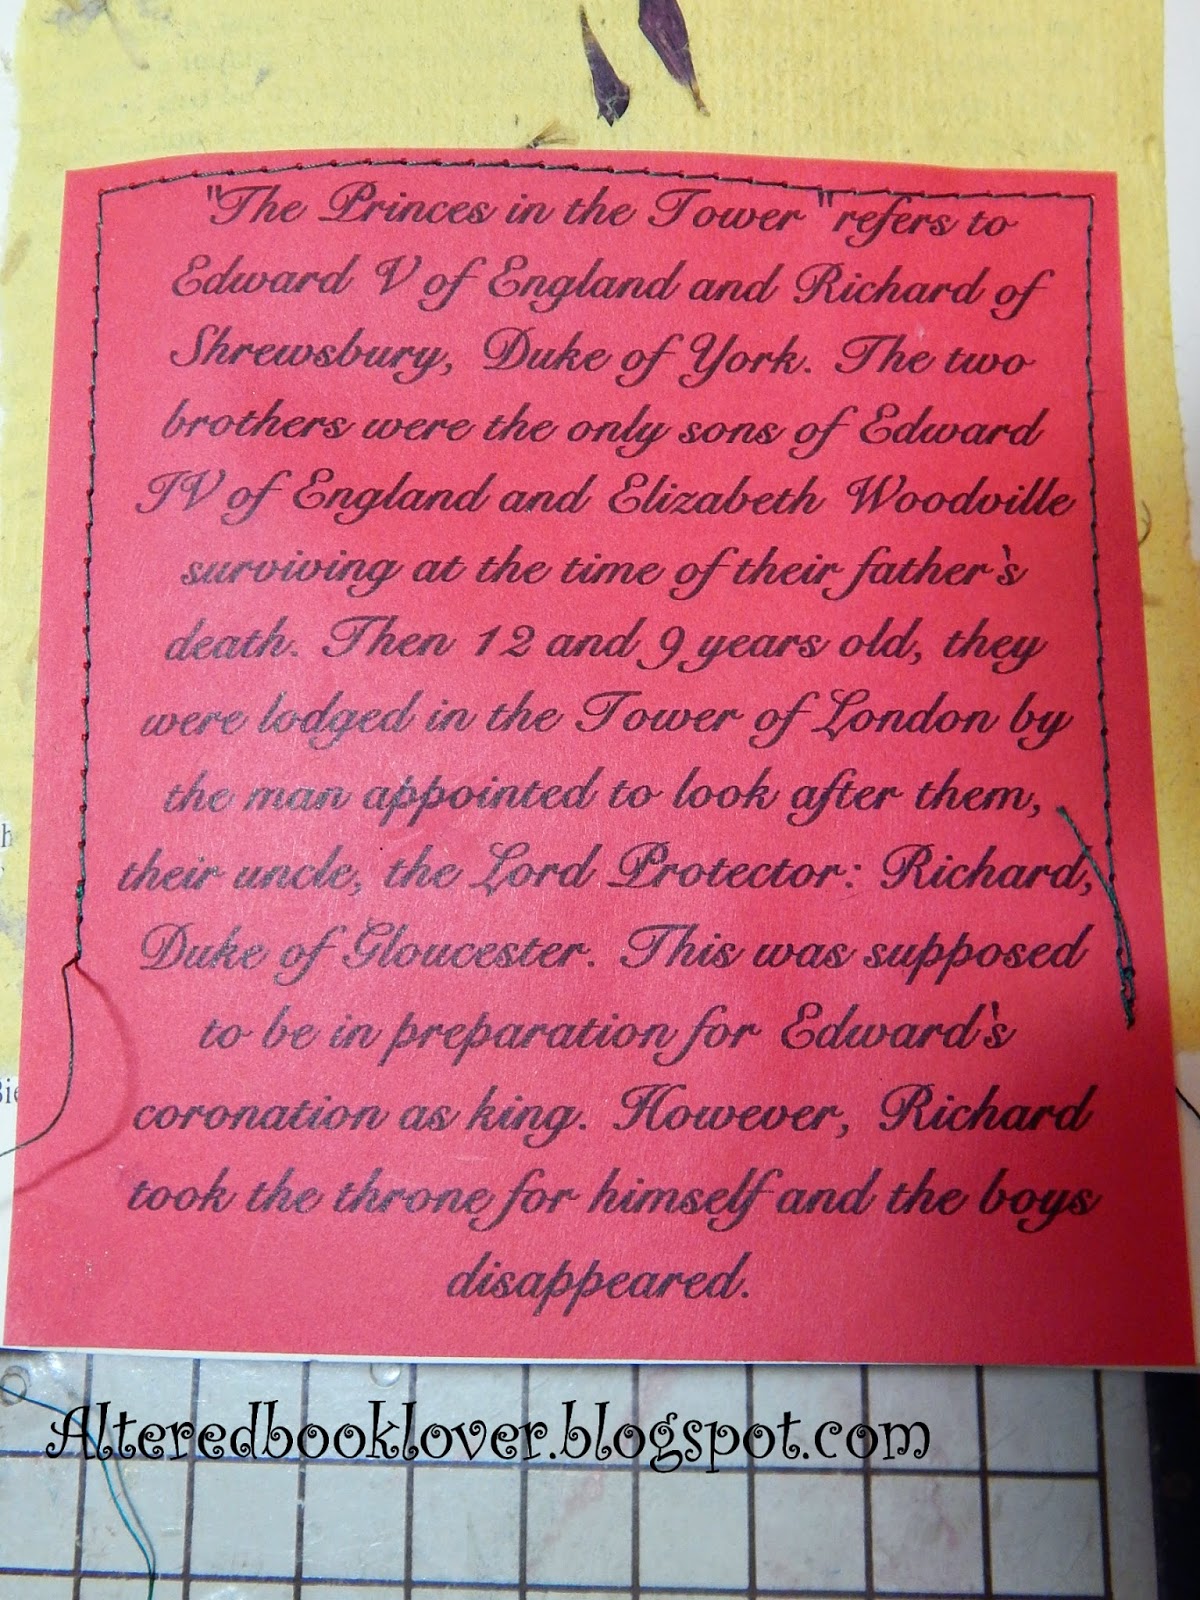 "The Princes in the Tower" refers to
Edward V of England and Richard of
Shrewsbury, Duke of York. The two
brothers were the only sons of Edward
IV of England and Elizabeth Woodville
surviving at the time of their father's
death. Then 12 and 9 years old, they
were lodged in the Tower of London by
the man appointed to look after them,
their uncle, the Lord Protector: Richard,
Duke of Gloucester. This was supposed
to be in preparation for Edward's
coronation as king. However, Richard
took the throne for himself and the boys
disappeared.
Alteredbooklover.blogspot.com